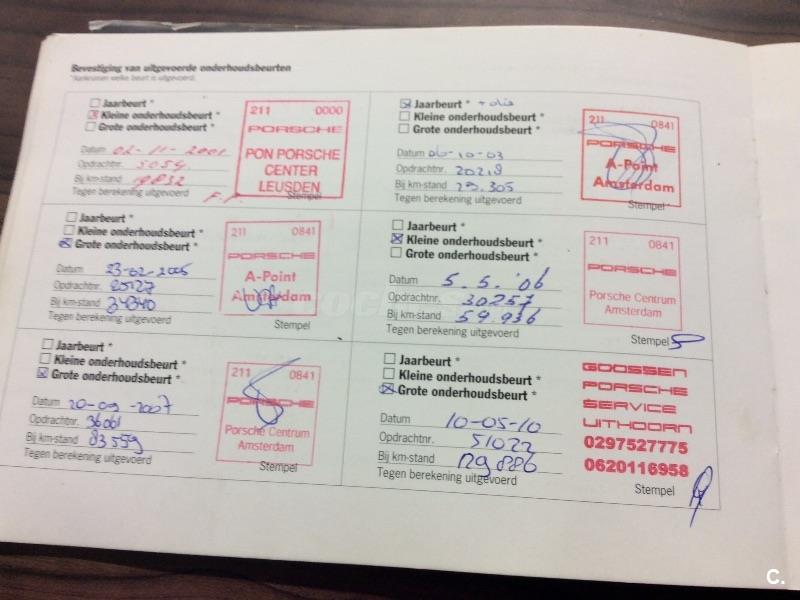 Bevestiging van uitgevoerde onderhoudsbeurten
*Aankruisen welke beurt is uitgevoerd.
Jaarbeurt *
Kleine onderhoudsbeurt *
Grote onderhoudsbeurt *
Datum 02-11-2001
Opdrachtnr. 3054
Bij km-stand 9832
Tegen berekening uitgevoerd
211 0000
PORSCHE
PON PORSCHE
CENTER
LEUSDEN
Stempel
Jaarbeurt * + olie
Kleine onderhoudsbeurt *
Grote onderhoudsbeurt *
Datum 06-10-03
Opdrachtnr. 20218
Bij km-stand 29.305
Tegen berekening uitgevoerd
211 0841
PORSCHE
A-Point
Amsterdam
Stempel
Jaarbeurt *
Kleine onderhoudsbeurt *
Grote onderhoudsbeurt *
Datum 23-02-2005
Opdrachtnr. 25127
Bij km-stand 34340
Tegen berekening uitgevoerd
211 0841
PORSCHE
A-Point
Amsterdam
Stempel
Jaarbeurt *
Kleine onderhoudsbeurt *
Grote onderhoudsbeurt *
Datum 5.5.'06
Opdrachtnr. 30257
Bij km-stand 59.936
Tegen berekening uitgevoerd
211 0841
PORSCHE
Porsche Centrum
Amsterdam
Stempel
Jaarbeurt *
Kleine onderhoudsbeurt *
Grote onderhoudsbeurt *
Datum 20-09-2007
Opdrachtnr. 36061
Bij km-stand 83559
Tegen berekening uitgevoerd
211 0841
PORSCHE
Porsche Centrum
Amsterdam
Stempel
Jaarbeurt *
Kleine onderhoudsbeurt *
Grote onderhoudsbeurt *
Datum 10-05-10
Opdrachtnr. 51022
Bij km-stand 129886
Tegen berekening uitgevoerd
GOOSSEN
PORSCHE
SERVICE
UITHOORN
0297527775
0620116958
Stempel
C.